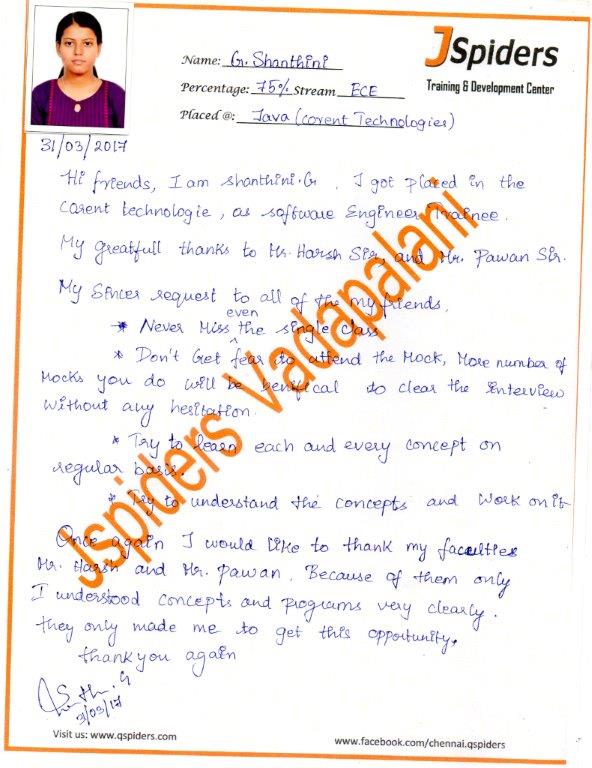 JSpiders
Training & Development Center
Name: G. Shanthini
Percentage: 75% Stream ECE
Placed @: Java (corent Technologies)
31/03/2017
Hi friends, I am shanthini.G. I got placed in the
corent technologie, as software Engineer Trainee.
My greatfull thanks to Mr. Harsh Sir, and Mr. Pawan Sir.
My Sincer request to all of the my friends,
* Never Miss the even single class
* Don't Get fear to attend the Mock, More number of
Mocks you do will be benifical to clear the Interview
without any hesitation.
* Try to learn each and every concept on
regular basis.
* Try to understand the concepts and work on it
Once again I would like to thank my faculties
Mr. Harsh and Mr. Pawan. Because of them only
I understood concepts and programs very clearly.
they only made me to get this opportunity.
thank you again
31/03/17
Jspiders Vadapalani
Visit us: www.qspiders.com
www.facebook.com/chennai.qspiders